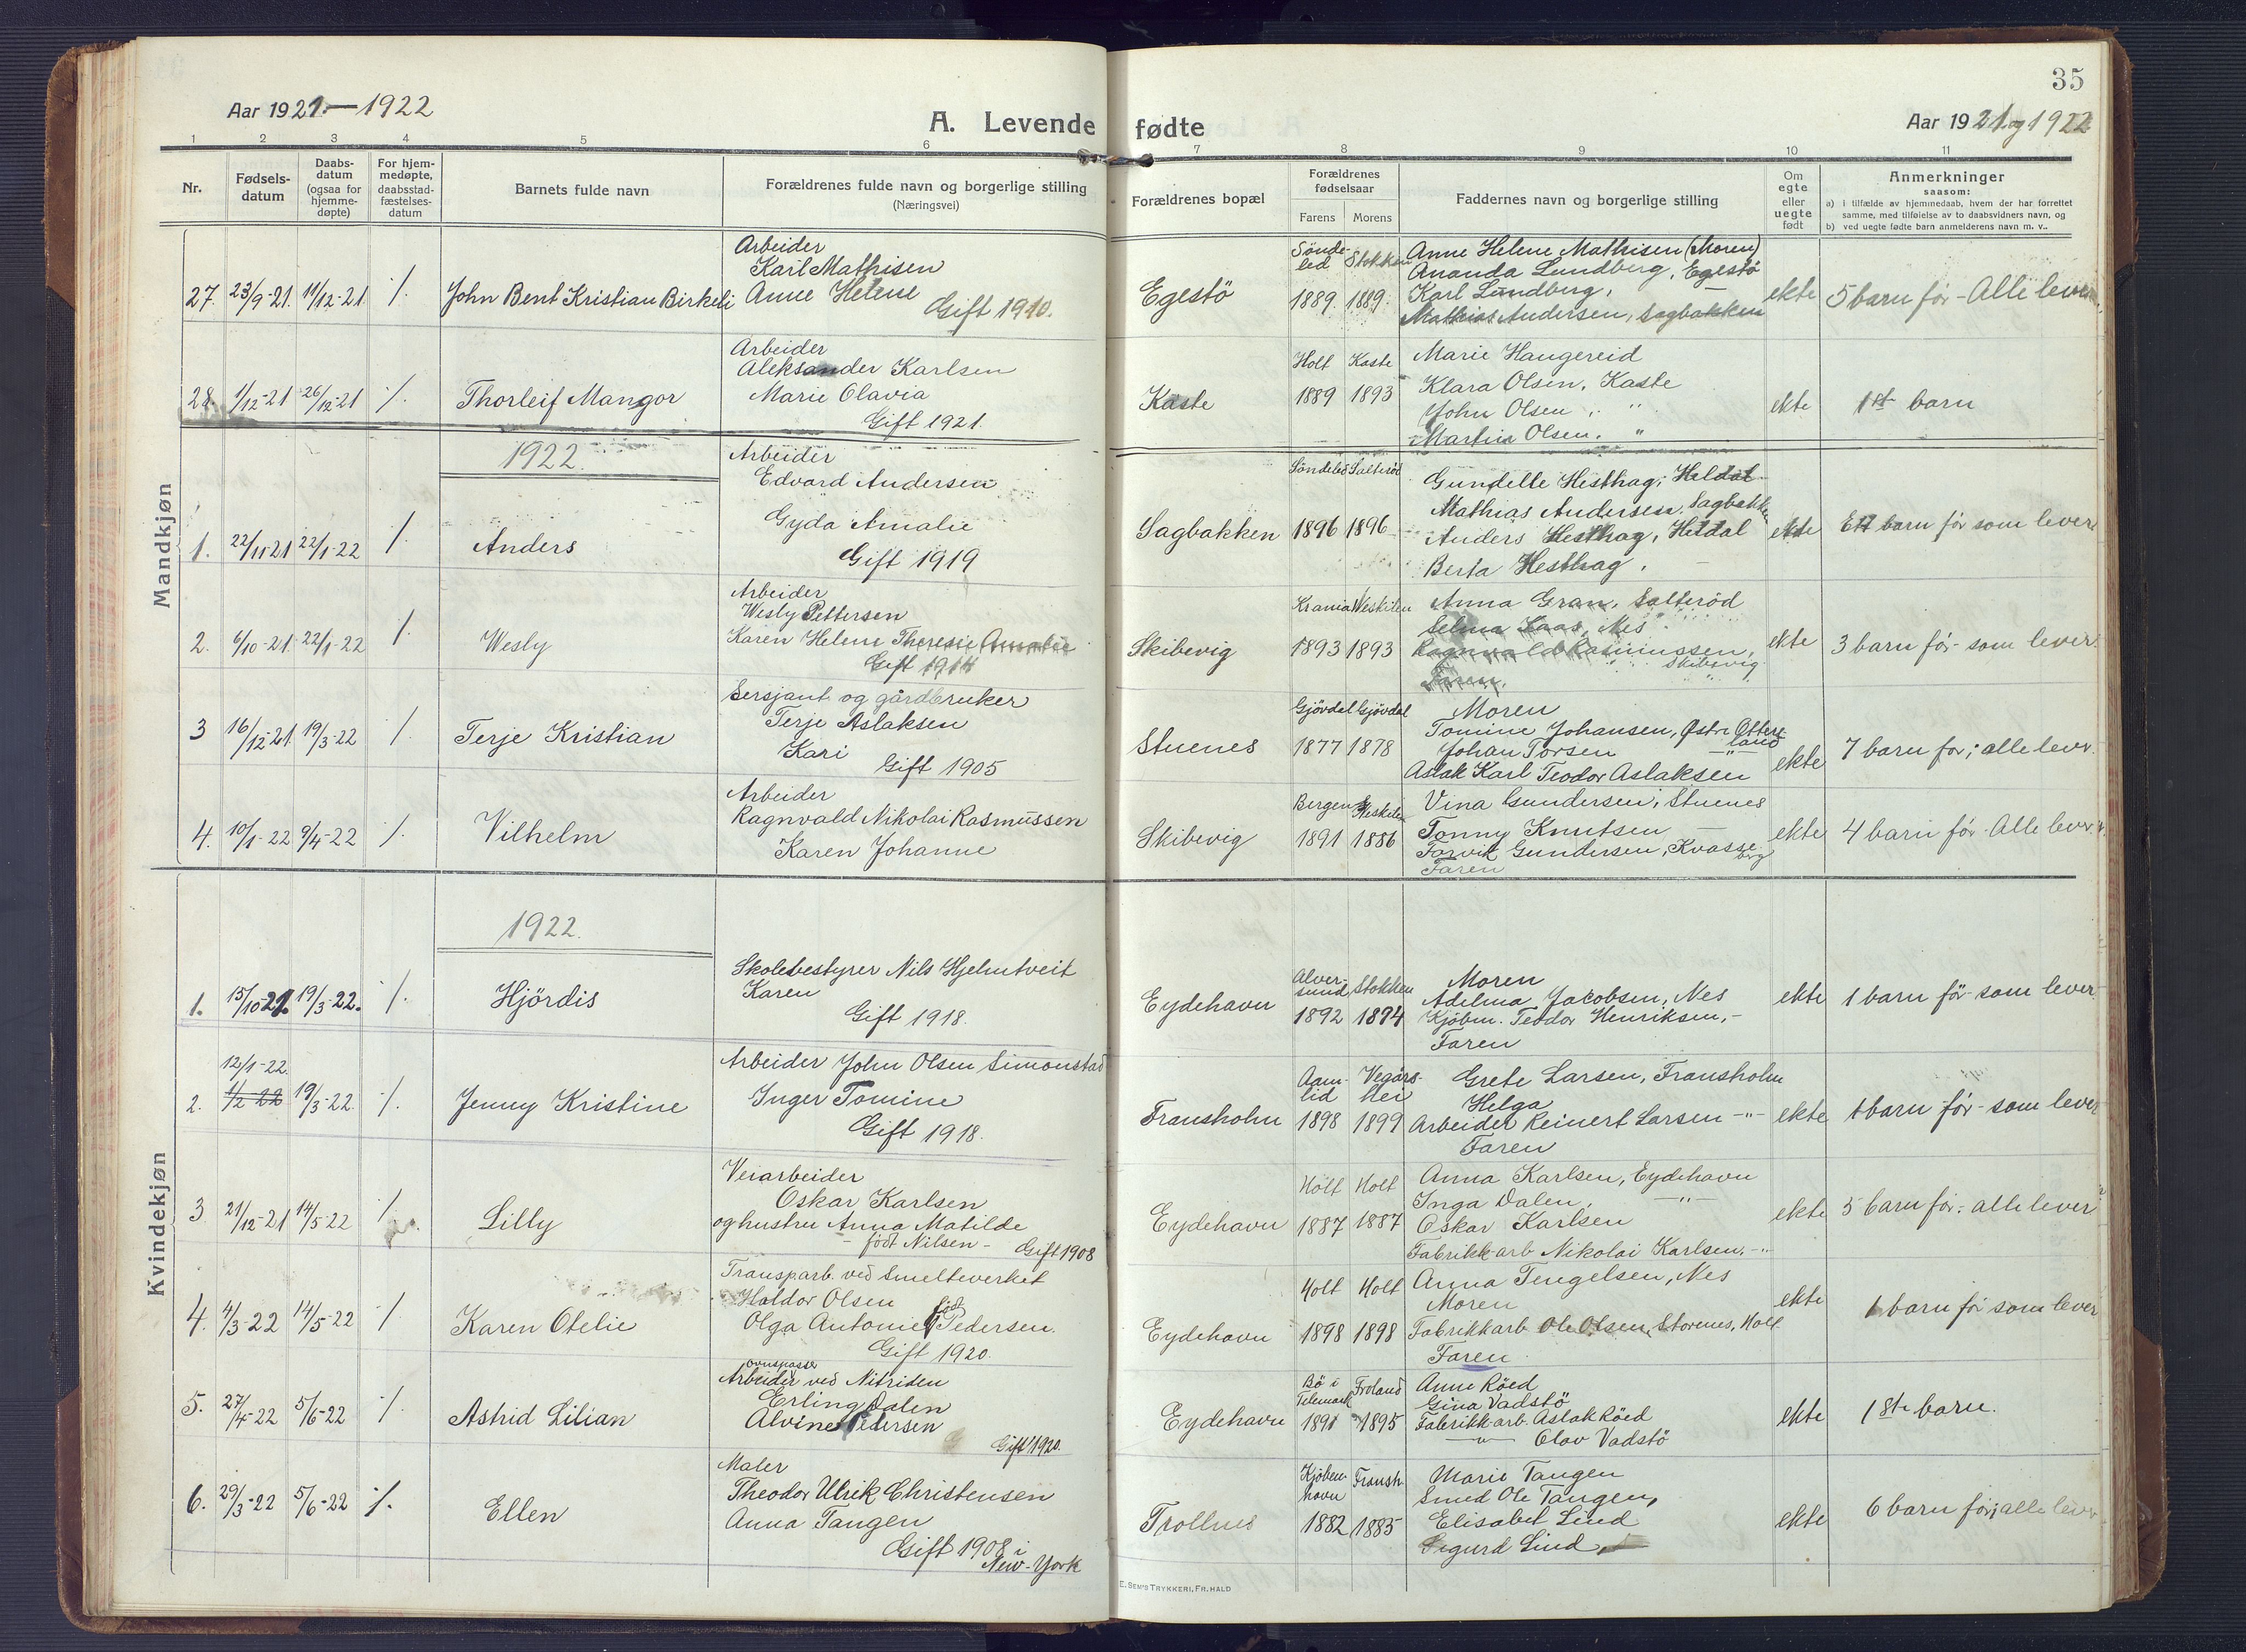 35
Aar 1921 — 1922
A. Levende fødte
Aar 1921 og 1922
1 2 3 4 5 6 7 8 9 10 11
Nr.
Fødsels-
datum
Daabs-
datum
(ogsaa for
hjemme-
døpte)
For hjem-
medøpte,
daabsstad-
fæstelses-
datum
Barnets fulde navn
Forældrenes fulde navn og borgerlige stilling
(Næringsvei)
Forældrenes bopæl
Forældrenes
fødselsaar
Farens Morens
Faddernes navn og borgerlige stilling
Om
egte
eller
uegte
født
Anmerkninger
saasom:
a) i tilfælde av hjemmedaab, hvem der har forrettet
samme, med tilføielse av to daabsvidners navn, og
b) ved uegte fødte barn anmelderens navn m. v..
Mandkjøn
27. 23/9-21. 11/12-21 /. John Bent Kristian Birkeli
Arbeider
Karl Mathisen
Anne Helene
Gift 1910.
Egestö
Sönde-
led Stokken
1889 1889.
Anne Helene Mathisen (Moren)
Ananda Lundberg, Egestö
Karl Lundberg, —
Mathias Andersen, Sagbakken
ekte
5 barn för - Alle lever.
28. 1/12-21 26/12-21 /. Thorleif Mangor
Arbeider
Aleksander Karlsen
Marie Olavia
Gift 1921.
Kaste
Holt Kaste
1889 1893
Marie Haugereid
Klara Olsen, Kaste
John Olsen, "
Martin Olsen, "
ekte
1st barn
1922.
1. 22/11-21 22/1-22 /. Anders
Arbeider
Edvard Andersen
Gyda Amalie
Gift 1919
Sagbakken
Söndeled Salteröd
1896 1896
Gundelle Hesthag, Heldal
Mathias Andersen, Sagbakken
Anders Hesthag, Heldal
Berta Hesthag, —
ekte
Ett barn för som lever
2. 6/10-21 22/1-22 /. Wesly
Arbeider
Wesly Pettersen
Karen Helene Theresie Amalie
Gift 1914
Skibevig
Krania Neskilen
1893 1893
Anna Gran, Salteröd
Selma Kaas, Nes
Ragnvald Rasmussen,
Skibevig
Faren,
ekte
3 barn för - som lever.
3 16/12-21 19/3-22 /. Terje Kristian
Sersjant og gårdbruker
Terje Aslaksen
Kari
Gift 1905
Stuenes
Gjövdal Gjövdal
1877 1878
Moren
Tomine Johansen, Østre Otters-
land
Johan Torsen — " —
Aslak Karl Teodor Aslaksen
ekte
7 barn for; alle lever.
4. 10/1-22 9/4-22 /. Vilhelm
Arbeider
Ragnvald Nikolai Rasmussen
Karen Johanne
Skibevig
Bergen Neskilen
1891 1886
Vina Gundersen, Stuenes
Tonny Knutsen —
Torvik Gundersen, Kvasse-
berg
Faren
ekte
4 barn för - Alle lever.
Kvindekjøn
1922.
1. 15/10-21. 19/3-22. /. Hjördis
Skolebestyrer Nils Hjelmtveit
Karen
Gift 1918.
Eydehavn
Alver-
sund Stokken
1892 1894
Moren
Adelma Jacobsen, Nes
Kjöbm. Teodor Henriksen, -
Faren
ekte
1 barn för - som lever
2. 12/1-22.
1/2-22 19/3-22. /. Jenny Kristine
Arbeider John Olsen Simonstad
Inger Tomine
Gift 1918.
Fransholm
Aam-
lid Vegårs-
hei
1898 1899
Grete Larsen, Fransholm
Helga
Arbeider Reinert Larsen — " —
Faren
ekte
1 barn för - som lever
3 21/12-21 14/5-22 /. Lilly
Veiarbeider
Oskar Karlsen
og hustru Anna Matilde
- født Nilsen - Gift 1908
Eydehavn
Holt Holt
1887 1887
Anna Karlsen, Eydehavn
Inga Dalen, — " —
Oskar Karlsen
Fabrikk-arb Nikolai Karlsen, - " -
ekte
5 barn för; alle lever
4. 4/3-22 14/5-22 /. Karen Otelie
Transp.arb. ved Smelteverket
Haldor Olsen
Olga Antonie född Pedersen.
Gift 1920.
Eydehavn
Holt Holt
1898 1898
Anna Tengelsen, Nes
Moren
Fabrikkarb Ole Olsen, Storenes, Holt
Faren
ekte
1 barn för som lever
5. 27/4-22 5/6-22 /. Astrid Lilian
ovnspasser
Arbeider ved Nitriden
Erling Dalen
Alvine Pedersen
Gift 1920.
Eydehavn
Bö i
Telemark Froland
1891 1895
Anne Röed
Gina Vadstö
Fabrikk-arb. Aslak Röed
— " — Olav Vadstö
ekte
1ste barn.
6. 29/3-22 5/6-22 /. Ellen
Maler
Theodor Ulrik Christensen
Anna Tangen
Gift 1908 i
New-York
Trollnes
Kjöben-
havn Fransh.
1882 1885
Marie Tangen
Smed Ole Tangen,
Elisabet Lind
Sigurd Lind,
ekte
6 barn för; alle lever
E. SEM'S TRYKKERI, FR.HALD